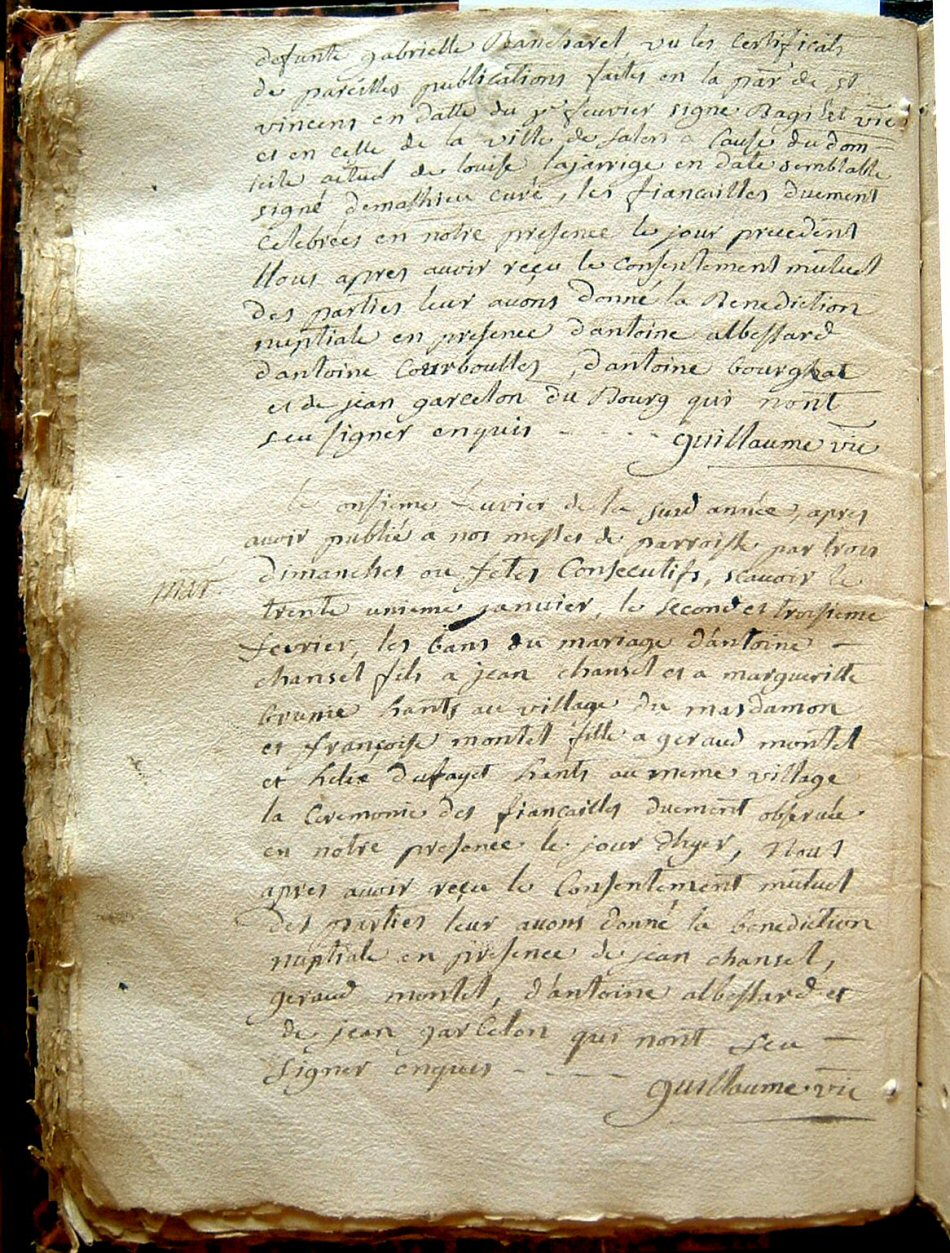 defunte gabrielle Bancharel vu les Certificats
de pareilles publications faites en la par de st
vincens en datte du pr fevrier signé Bagilet vic
et en celle de la ville de salers a Cause du dom-
icile actuel de louise lajarrige en date semblable
signé demathieu curé, les fiancailles duement
Celebrées en notre presence le jour precedent
Nous apres avoir reçu le Consentement mutuel
des parties leur avons donné la Benediction
nuptiale en presence d'antoine albessard
d'antoine Courboulles, d'antoine bourghat
et de jean garcelon du Bourg qui n'ont
seu signer enquis - - - - guillaume vic
le onsieme fevrier de la susd année, apres
avoir publié a nos messes de parroisse par trois
mar
dimanches ou fetes Consecutifs, scavoir le
trente unieme janvier, le second et troisieme
fevrier, les bans du mariage d'antoine -
chansel fils a jean chansel et a margueritte
brunie hants au village du masdamon
et françoise montel fille a geraud montel
et helix dufayet hants au meme village
la Ceremonie des fiancailles duement observée
en notre presence le jour d'hyer, Nous
apres avoir reçu le Consentement mutuel
des parties leur avons donné la benediction
nuptiale en presence de jean chansel,
geraud montel, d'antoine albessard et
de jean garcelon qui n'ont seu -
signer enquis - - - -
guillaume vic